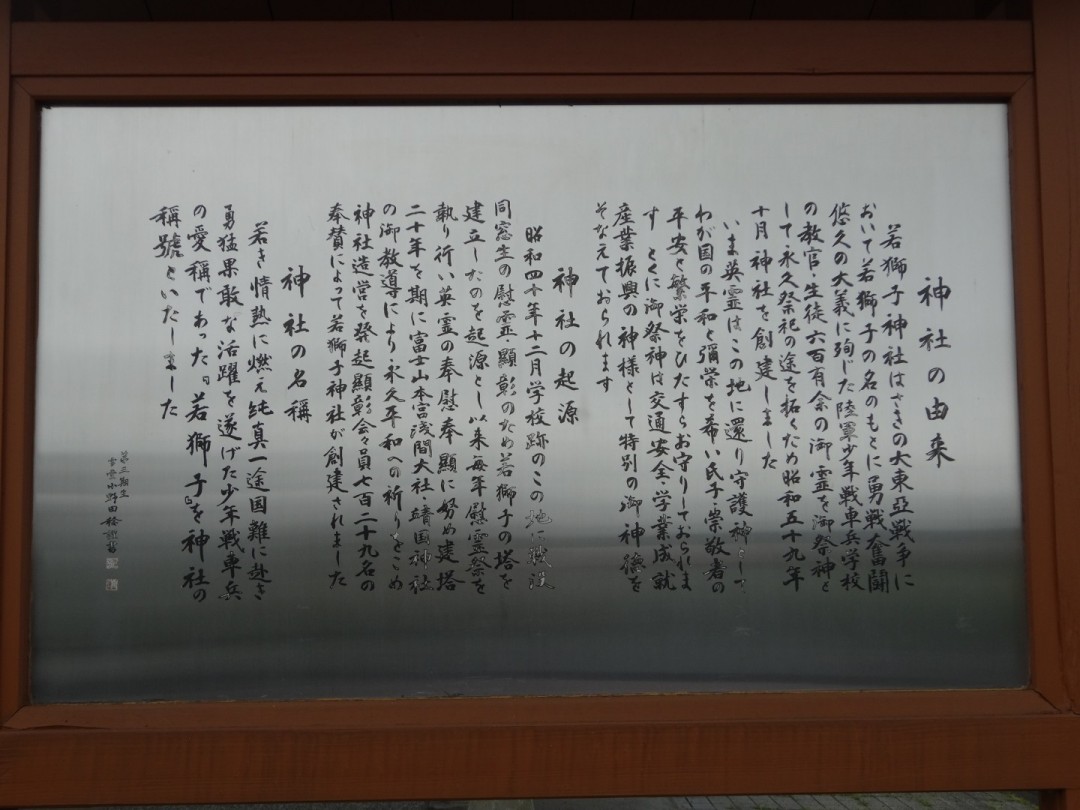 神社の由来
若獅子神社はさきの大東亞戦争に
おいて若獅子の名のもとに勇戦奮闘
悠久の大義に殉じた陸軍少年戦車兵学校
の教官・生徒六百有余の御霊を御祭神と
して永久祭祀の途を拓くため昭和五十九年
十月神社を創建しました
いま英霊はこの地に還り守護神として
わが国の平和と彌栄を希い氏子・崇敬者の
平安と繁栄をひたすらお守りしておられま
す とくに御祭神は交通安全・学業成就
産業振興の神様として特別の御神徳を
そなえておられます
神社の起源
昭和四十年十二月学校跡のこの地に戦没
同窓生の慰霊・顕彰のため若獅子の塔を
建立したのを起源とし以来毎年慰霊祭を
執り行い英霊の奉慰奉顕に努め建塔
二十年を期に富士山本宮浅間大社・靖国神社
の御教導により永久平和への祈りをこめ
神社造営を発起顕彰会々員七百二十九名の
奉賛によって若獅子神社が創建されました
神社の名稱
若き情熱に燃え純真一途国難に赴き
勇猛果敢な活躍を遂げた少年戦車兵
の愛稱であった『若獅子』を神社の
稱號といたしました
第三期生
小野田